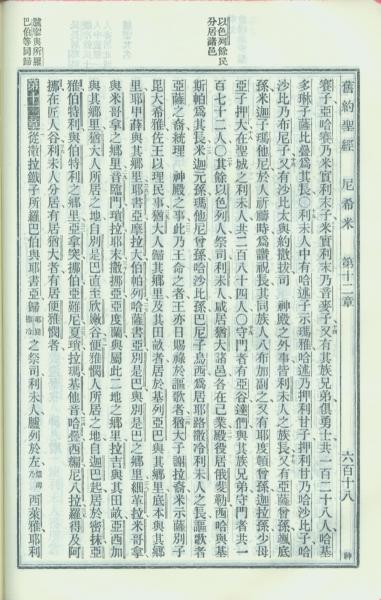 以色列餘民
分居諸邑
臚舉與所羅
巴伯等同歸
舊約聖經　尼希米　第十二章　六百十八　神
賽子亞哈賽乃米實利末子米實利末乃音麥子又有其族兄弟俱勇士共一百二十八人哈基
多琳子薩比疊爲其長〇利未人中有哈述子示瑪雅哈述乃押利甘子押利甘乃哈沙比子哈
沙比乃布尼子又有沙比太與約撒拔司　神殿之外事皆利未人之族長又有亞薩曾孫颯底
孫米迦子瑪他尼於人祈禱時爲讚祝長其同族人八布加副之又有耶度頓曾孫迦拉孫少母
亞子押大在聖城之利未人共二百八十四人〇守門者有亞谷達們與其族兄弟守門者共一
百七十二人〇其餘以色列人祭司利未人咸居猶大諸邑各在己業殿役居俄斐勒西哈與基
斯帕爲其長米迦元孫瑪他尼曾孫哈沙比孫巴尼子烏西爲居耶路撒冷利未人之長謳歌者
亞薩之裔統理　神殿之事此乃王命之者王亦日賜祿於謳歌者猶大子謝拉裔米示薩別子
毘大希雅佐王以理民事猶大人歸其鄉里及其田畝者居於基列亞巴與其鄉里底本與其鄉
里耶甲薛與其鄉里耶書亞摩拉大伯帕列哈薩書亞別是巴與別是巴之鄉里細革拉米哥拿
與米哥拿之鄉里音臨門瑣拉耶末撒挪亞亞度蘭與屬此二地之鄉里拉吉與其田畝亞西加
與其鄉里猶大人所居之地自別是巴直至欣嫩谷便雅憫人所居之地自迦巴起居於密抹亞
雅伯特利與伯特利之鄉里亞拿突挪伯亞難尼夏瑣拉瑪基他音哈疊西編尼八拉羅得及阿
挪在匠人谷利未人分居有居猶大者有居便雅憫者
第十二章從撒拉鐵子所羅巴伯與耶書亞歸耶路撒冷之祭司利未人臚列於左　西萊雅耶利